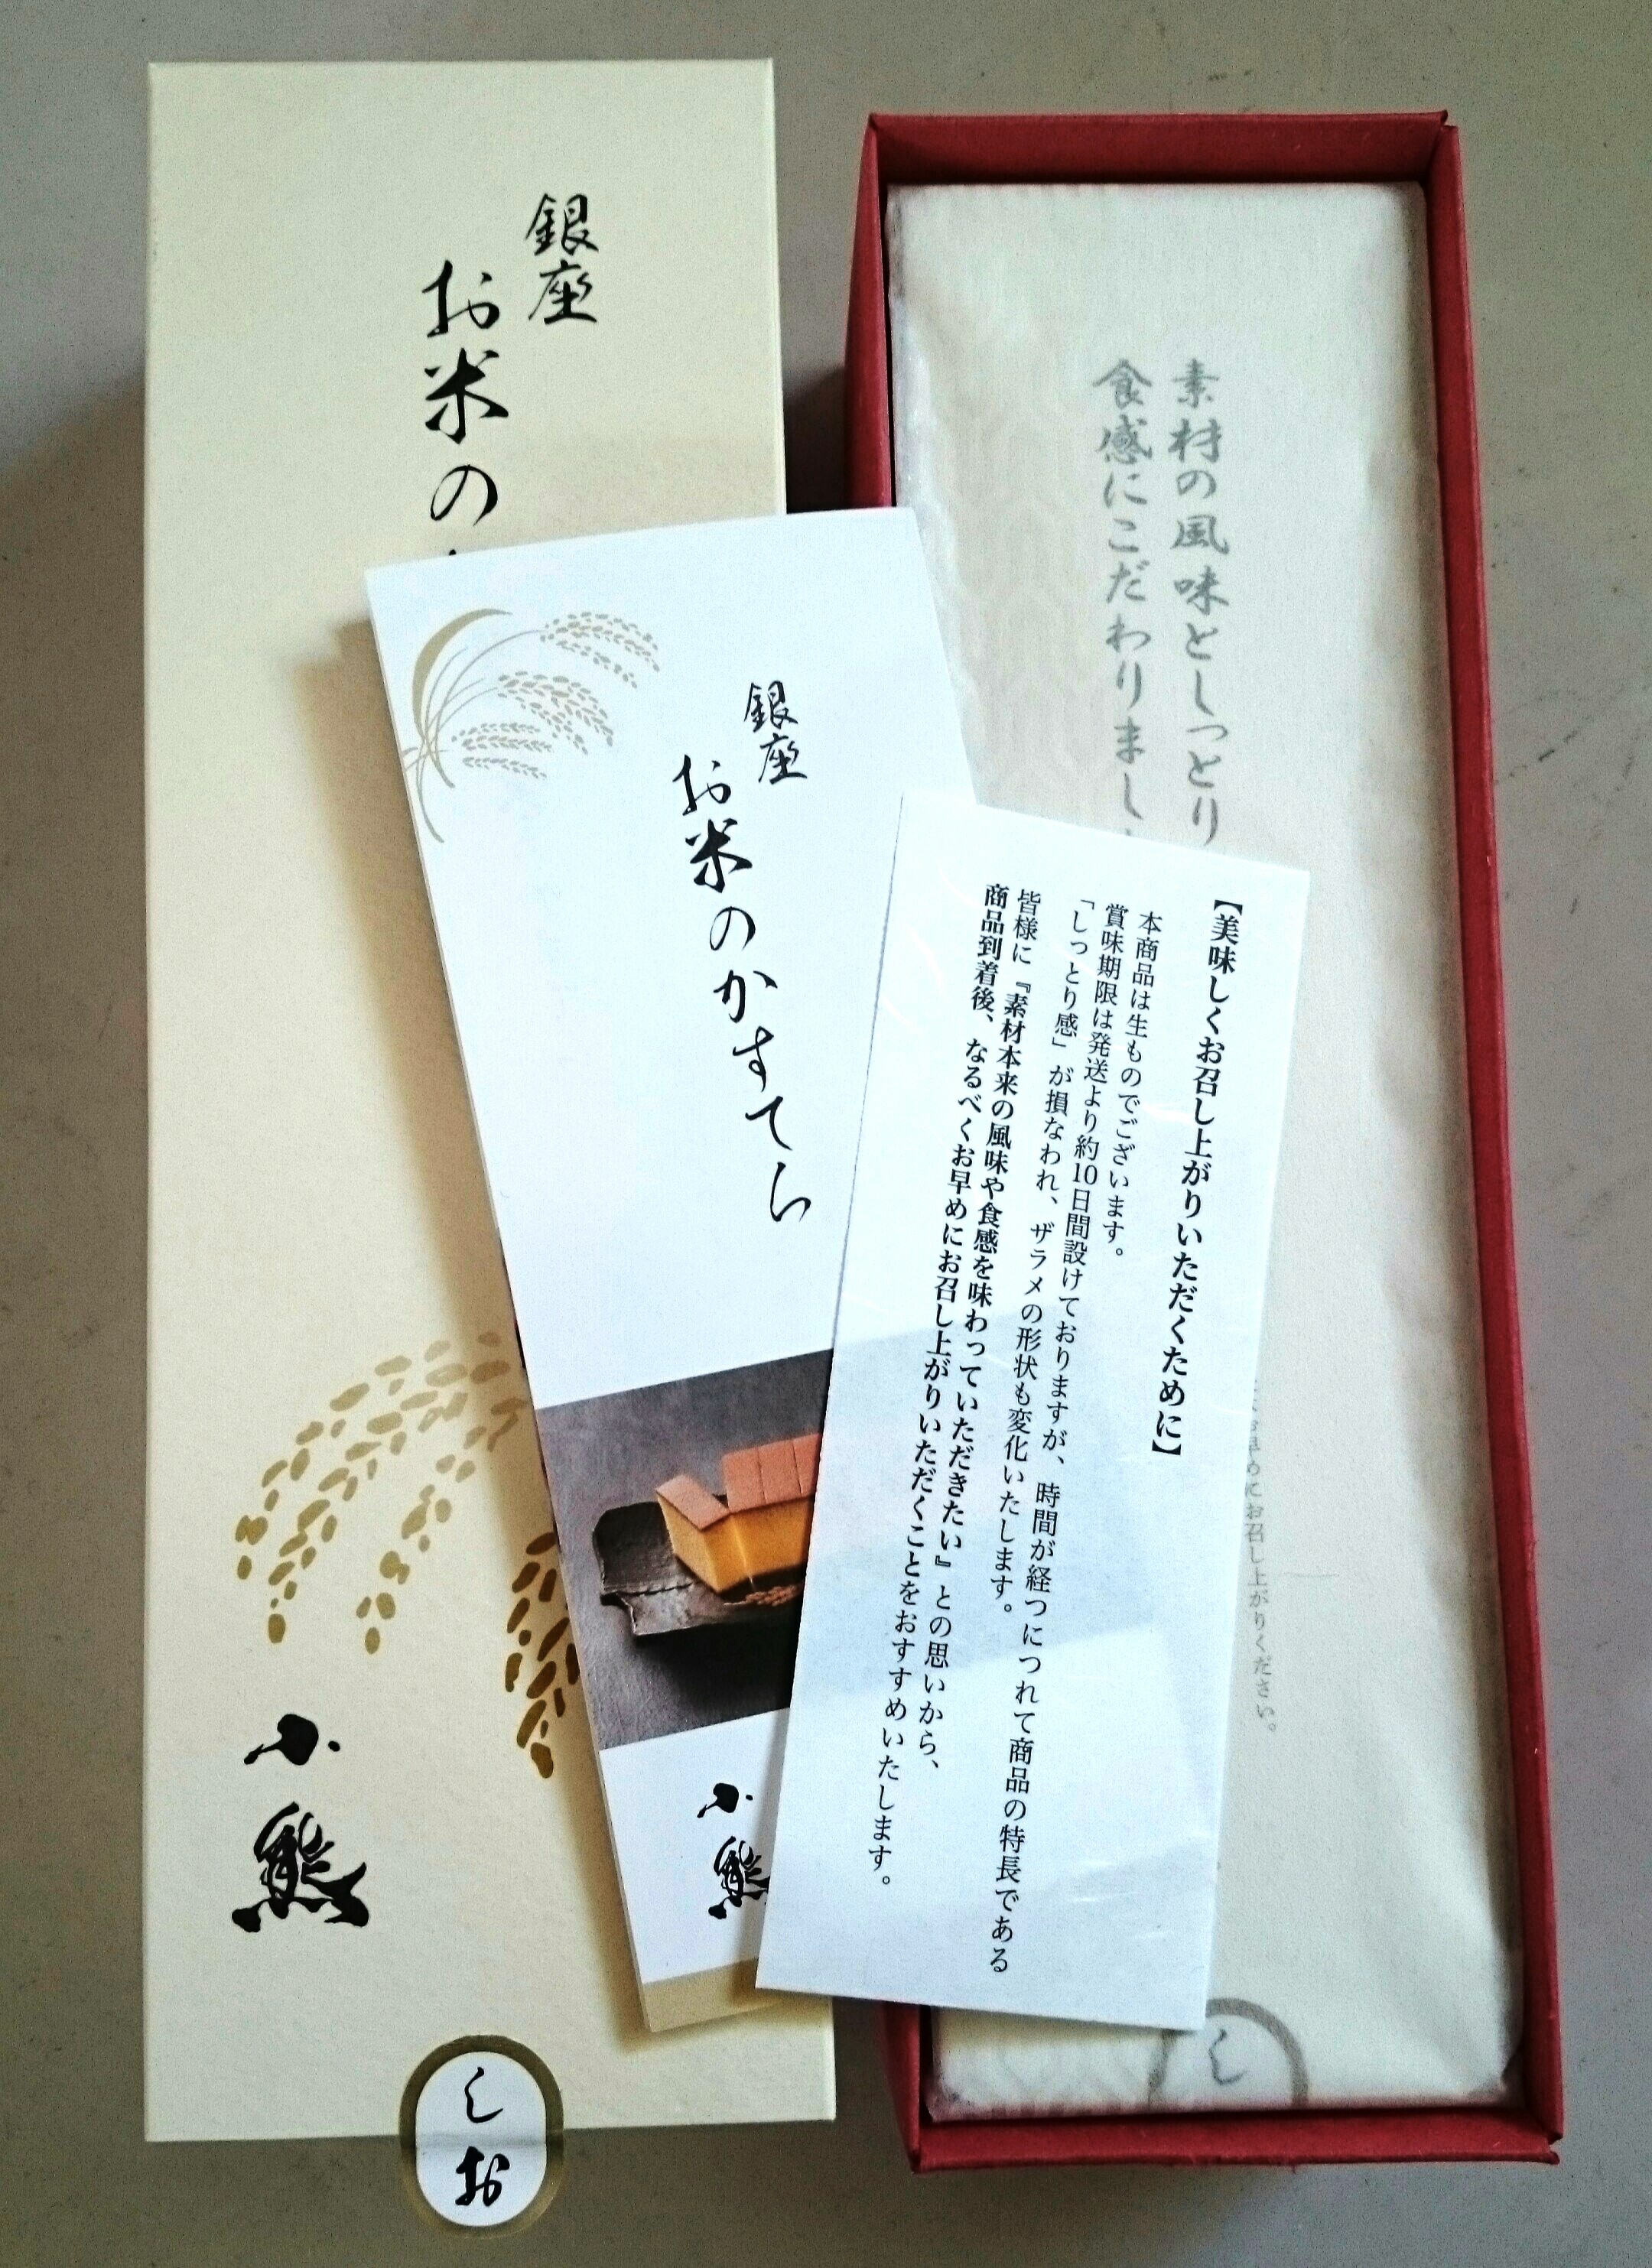 銀座
お米の
小熊
しお
銀座
お米のかすてら
小熊
【美味しくお召し上がりいただくために】
本商品は生ものでございます。
賞味期限は発送より約10日間設けておりますが、時間が経つにつれて商品の特長である
「しっとり感」が損なわれ、ザラメの形状も変化いたします。
皆様に『素材本来の風味や食感を味わっていただきたい』との思いから、
商品到着後、なるべくお早めにお召し上がりいただくことをおすすめいたします。
素材の風味としっとり
食感にこだわりまし
お早めにお召し上がりください。
し